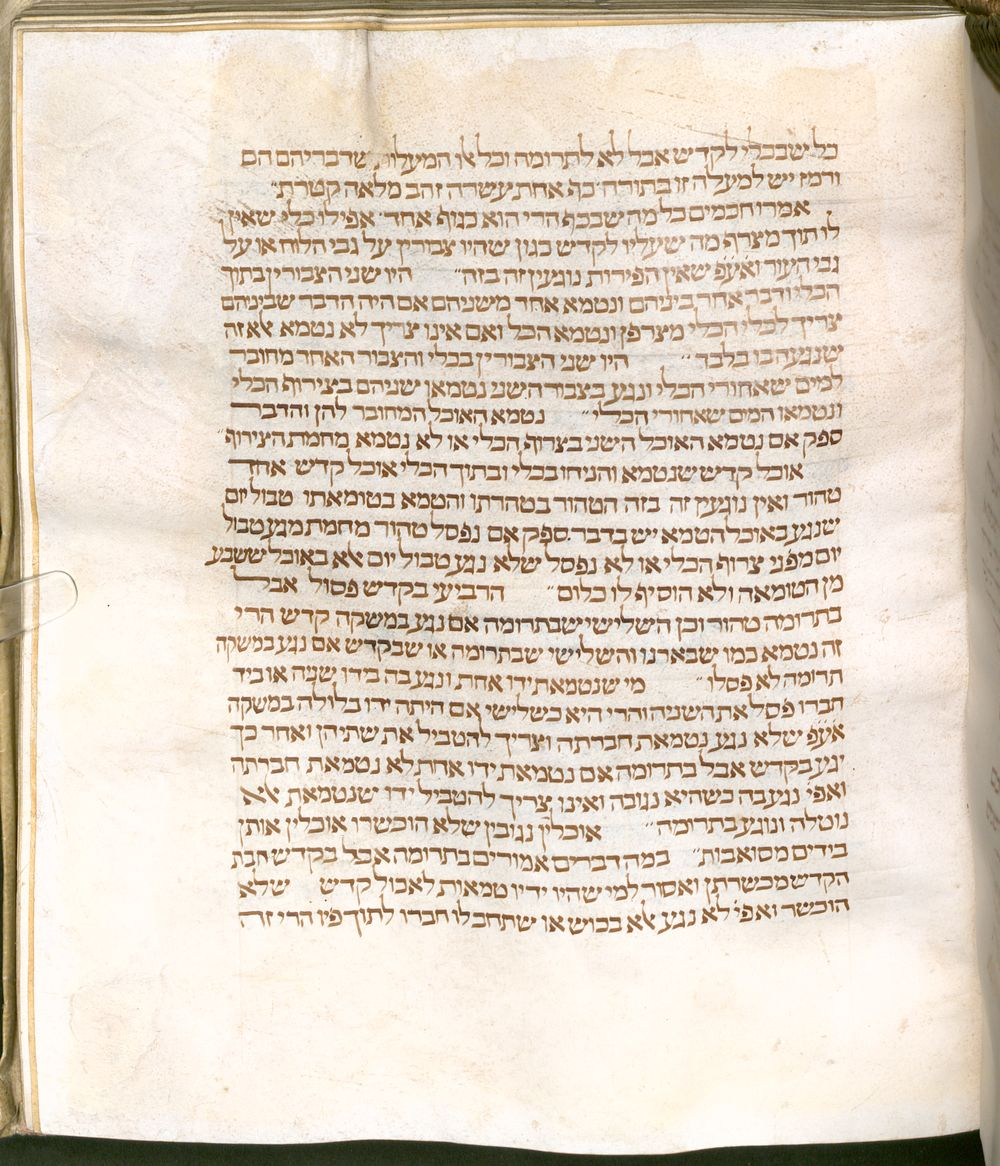 כל שבכלי לקדש אבל לא לתרומה וכל אלו המעלות שדבריהם הם
ורמז יש למעלה זו בתורה כף אחת עשרה זהב מלאה קטרת״
אמרו חכמים כל מה שבכף הרי הוא כגוף אחד אפילו כלי שאין
לו תוך מצרף מה שעליו לקדש כגון שהיו צבורין על גבי הלוח או על
גבי העור ואעפ שאין הפירות נוגעין זה בזה״ היו שני הצבורין בתוך
הכלי ודבר אחר ביניהם ונטמא אחד משניהם אם היה הדבר שביניהם
צריך לכלי הכלי מצרפן ונטמא הכל ואם אינו צריך לא נטמא אלא זה
שנגעה בו בלבד״ היו שני הצבורין בכלי והצבור האחר מחובר
למים שאחורי הכלי ונגע בצבור השני נטמאן שניהם בצירוף הכלי
ונטמאו המים שאחורי הכלי״ נטמא האוכל המחובר להן והדבר
ספק אם נטמא האוכל השני בצרוף הכלי או לא נטמא מחמת הצירוף״
אוכל קדש שנטמא והניחו בכלי ובתוך הכלי אוכל קדש אחד
טהור ואין נוגעין זה בזה הטהור בטהרתו והטמא בטומאתו טבול יום
שנגע באוכל הטמא יש בדבר ספק אם נפסל טהור מחמת מגע טבול
יום מפני צרוף הכלי או לא נפסל שלא נגע טבול יום אלא באוכל ששבע
מן הטומאה ולא הוסיף לו כלום״ הרביעי בקדש פסול אבל
בתרומה טהור וכן השלישי שבתרומה אם נגע במשקה קדש הרי
זה נטמא כמו שבארנו והשלישי שבתרומה או שבקדש אם נגע במשקה
תרומה לא פסלו״ מי שנטמאת ידו אחת ונגע בה בידו שניה או ביד
חברו פסל את השניה והרי היא כשלישי אם היתה ידו בלולה במשקה
אעפ שלא נגע נטמאת חברתה וצריך להטביל את שתיהן ואחר כך
יגע בקדש אבל בתרומה אם נטמאת ידו אחת לא נטמאת חברתה
ואפי נגע בה כשהיא נגובה ואינו צריך להטביל ידו שנטמאת אלא
נוטלה ונוגע בתרומה״ אוכלין נגובין שלא הוכשרו אוכלין אותן
בידים מסואבות״ במה דברים אמורים בתרומה אבל בקדש חבת
הקדש מכשרתן ואסור למי שהיו ידיו טמאות לאכול קדש שלא
הוכשר ואפי לא נגע אלא בכוש או שתחב לו חברו לתוך פיו הרי זה